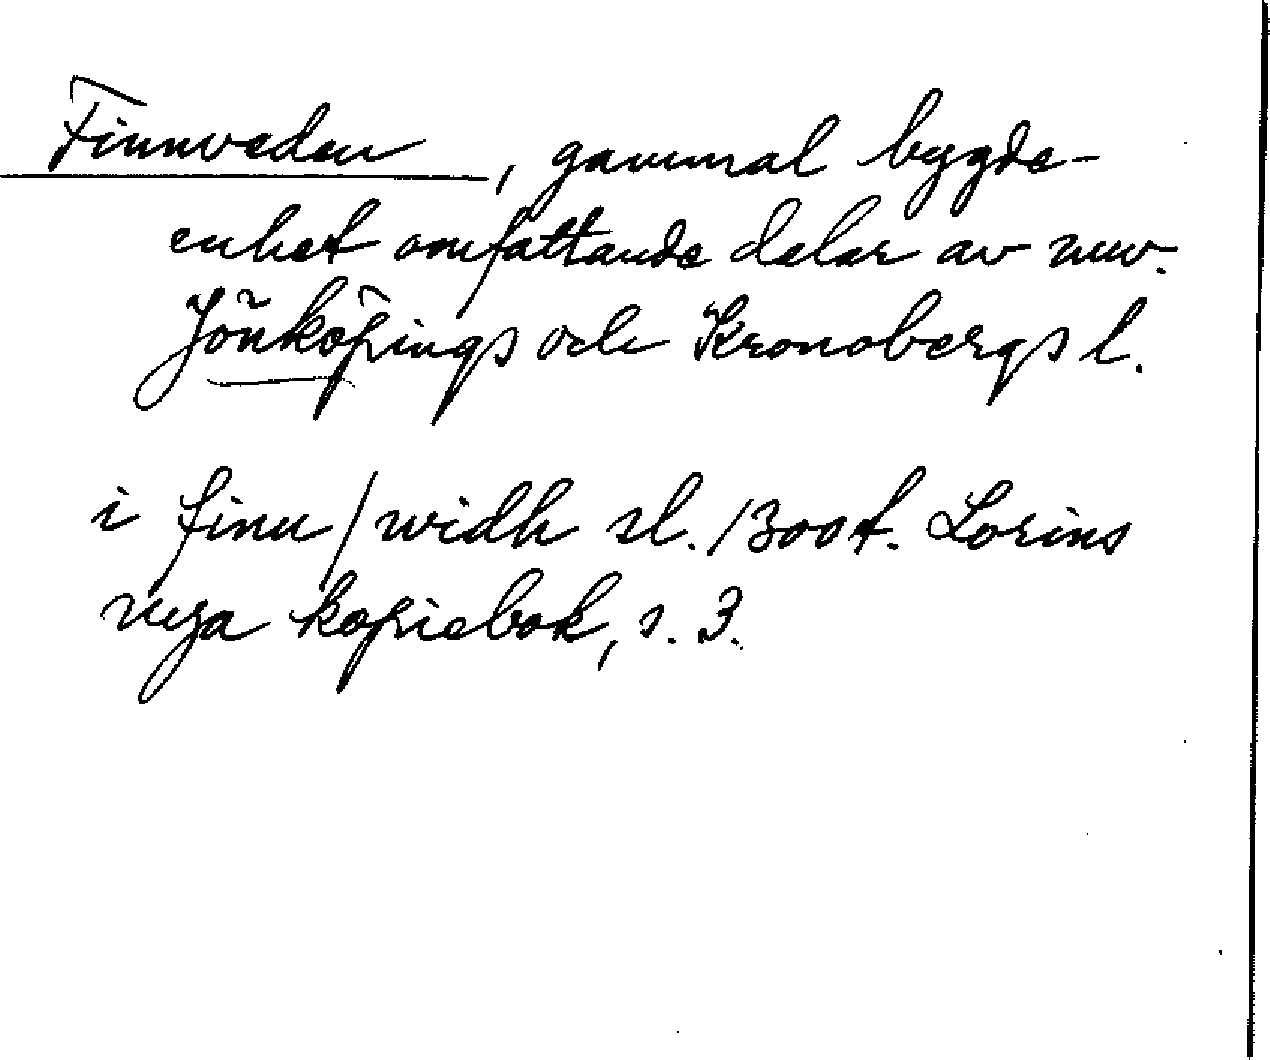 Finnveden, gammal bygde-
enhet omfattande delar av nuv.
Jönköpings och Kronobergs l.
i finn/widh sl. 1300t. Lorins
nya kopiebok, s. 3.